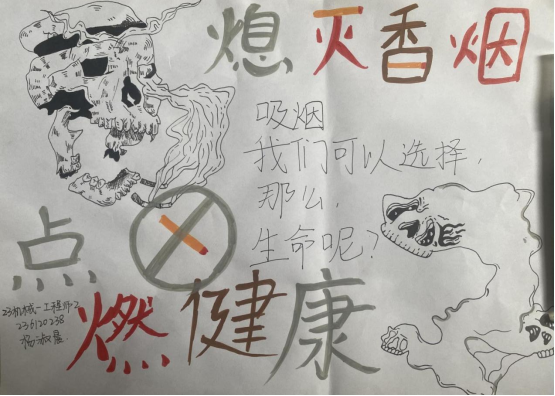 熄灭香烟
吸烟
我们可以选择，
那么，
生命呢？
点
燃健康
23机械一工程师2
236120238